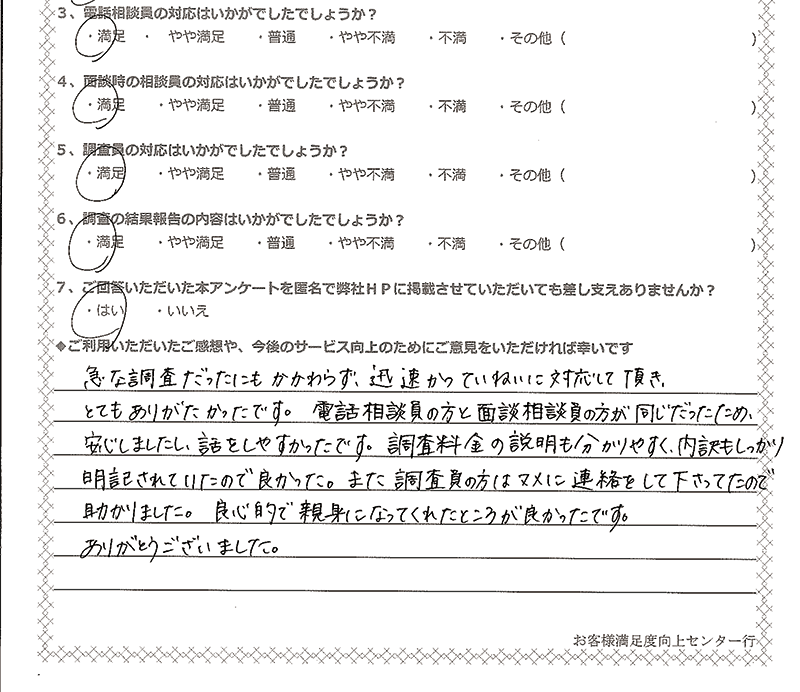 3、電話相談員の対応はいかがでしたでしょうか？
・満足　・　やや満足　・普通　・やや不満　・不満　・その他（　）
4、面談時の相談員の対応はいかがでしたでしょうか？
・満足　・やや満足　・普通　・やや不満　・不満　・その他（　）
5、調査員の対応はいかがでしたでしょうか？
・満足　・やや満足　・普通　・やや不満　・不満　・その他（　）
6、調査の結果報告の内容はいかがでしたでしょうか？
・満足　・やや満足　・普通　・やや不満　・不満　・その他（　）
7、ご回答いただいた本アンケートを匿名で弊社ＨＰに掲載させていただいても差し支えありませんか？
・はい　・いいえ
◆ご利用いただいたご感想や、今後のサービス向上のためにご意見をいただければ幸いです
急な調査だったにもかかわらず、迅速かつていねいに対応して頂き、
とてもありがたかったです。電話相談員の方と面談相談員の方が同じだったため、
安心しましたし、話をしやすかったです。調査料金の説明も分かりやすく、内訳もしっかり
明記されていたので良かった。また調査員の方はマメに連絡をして下さってたので
助かりました。良心的で親身になってくれたところが良かったです。
ありがとうございました。
お客様満足度向上センター行